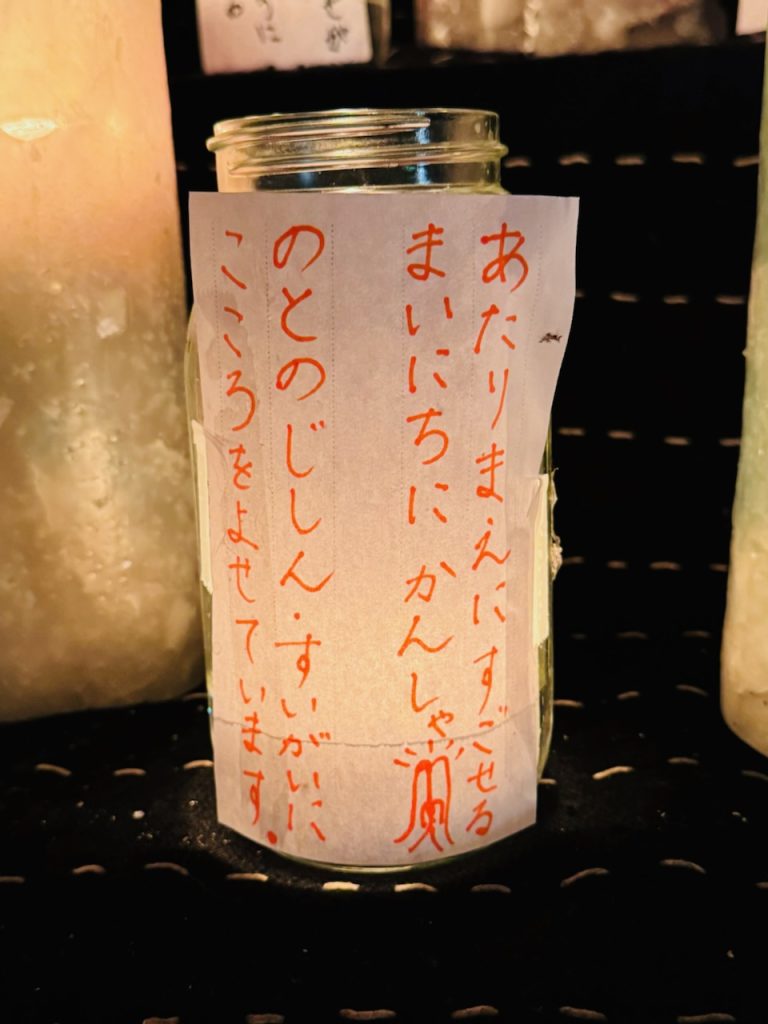 あたりまえにすごせる
まいにちに かんしゃ
のとのじしん・すいがいに
こころをよせています。